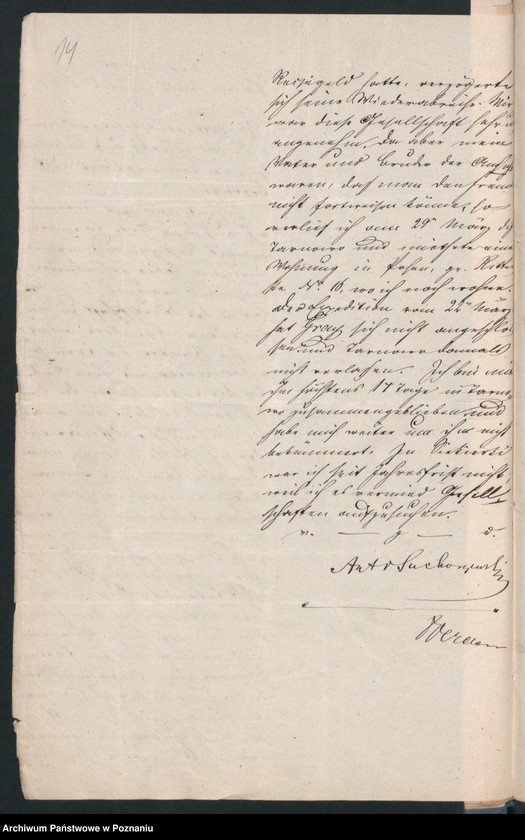 14
Reisegeld hatte, verzögerte
sich seine Wiederabreise. Mir
war diese Gesellschaft sehr
angenehm. Da aber mein
Vater und Bruder der Ansicht
waren, daß man den Fremden
nicht fortweisen könne, so
verließ ich am 29n März
Tarnowo und miethete eine
Wohnung in Posen, gr. Ritter
Str. Nr. 16, wo ich noch wohne.
Der Expedition vom 22n März
hat sich nicht angeschlos
sen und Tarnowo damals
nicht verlassen. Ich bin mit
ihm höchstens 17 Tage in Tarno
wo zusammengeblieben und
habe mich weiter um ihn nicht
bekümmert. In Siekierki
war ich seit Jahresfrist nicht,
weil ich es vermied Gesell
schaften aufzusuchen.
v. — g. — u.
Archiwum Państwowe w Poznaniu